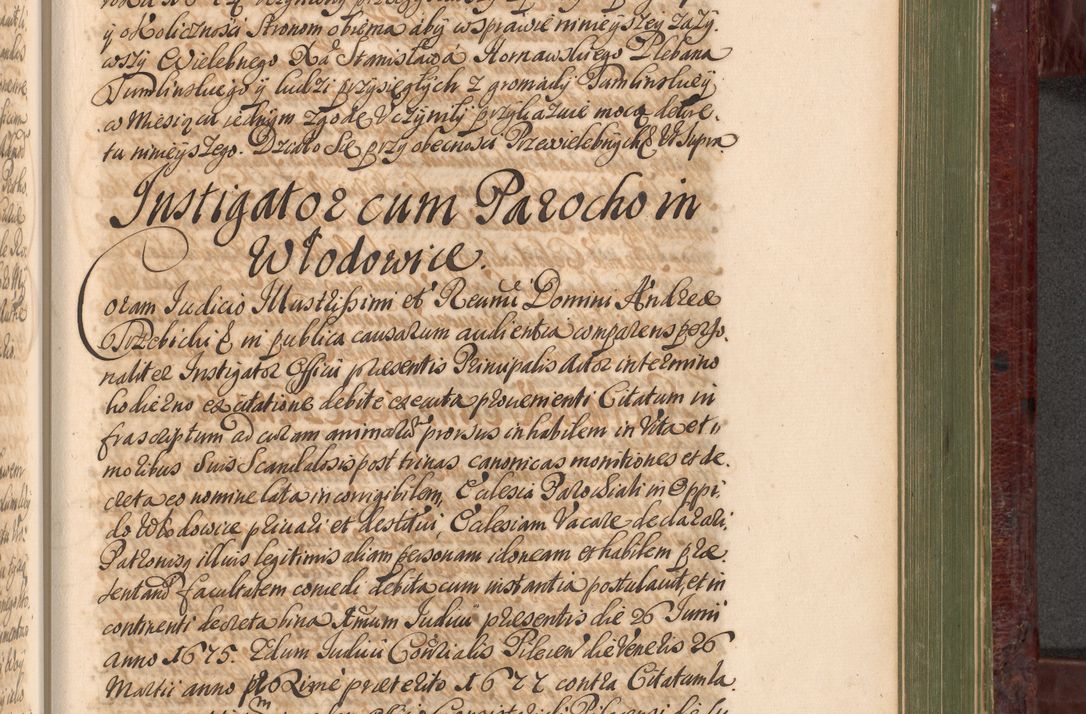 y okoliczności stronom obiema aby w sprawie ninieyszey zaży
wszy Wielebnego Xa Stanisława Kornawskiego Plebana
Tumlinskiego y ludzi przysięgłych z gromady Tumlinskiey
w Miesiącu iednym zgodę uczynily przykazuie mocą dekre
tu ninieyszego. Działo się przy obecnosci Przewielebnych &c Ut supra
Instigator cum Parocho in
Włodowice.
Coram Judicio Illustrissimi et Reandi Domini Andreæ
Trzebicki &c in publica causarum audientia comparens perso
naliter Instigator Officii præsentis Principalis actor in termino
hodierno ex citatione debite executa provenienti Citatum in
frascriptum ad curam animarum prorsus inhabilem in vita et
moribus suis Scandalosis post trinas canonicas monitiones et de
creta eo nomine lata incorrigibilem, Ecclesia Parochiali in Oppi
do Włodowice privari et destitui, Ecclesiam Vacare declarari,
Patronisq illius legitimis aliam personam idoneam et habilem præ
sentand facultatem concedi debita cum instantia postulavit, et in
continenti decreta bina Imum Judicii præsentis die 26 Junii
anno 1675. 2dum Judicii Consrialis Pilecen die Veneris 26
Martii anno proxime præterito 1677 contra Citatum la